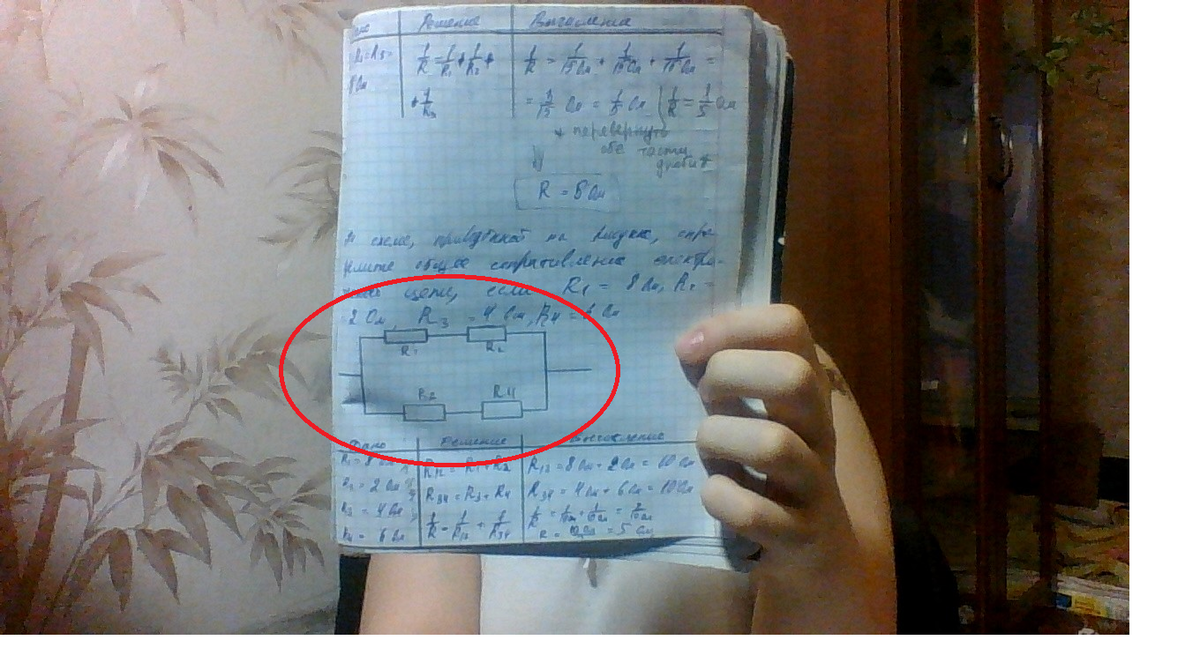 Решение Вычисление
1/R = 1/R₁ + 1/R₂ + 1/R = 1/15 Ом + 1/15 Ом + 1/15 Ом =
+ 1/R₃ = 3/15 Ом = 1/5 Ом 1/R = 1/5 Ом
перевернуть
обе части
дроби
R = 5 Ом
схеме, приведённой на рисунке, опре-
делите общее сопротивление электри-
цепи, если R₁ = 8 Ом, R₂ =
2 Ом, R₃ = 4 Ом, R₄ = 6 Ом
R₁ R₂
R₃ R₄
Дано Решение Вычисление
R₁ = 8 Ом R₁₂ = R₁ + R₂ R₁₂ = 8 Ом + 2 Ом = 10 Ом
R₂ = 2 Ом R₃₄ = R₃ + R₄ R₃₄ = 4 Ом + 6 Ом = 10 Ом
R₃ = 4 Ом 1/R = 1/R₁₂ + 1/R₃₄ 1/R = 1/10 Ом + 1/10 Ом = 2/10 Ом
R₄ = 6 Ом = 5 Ом